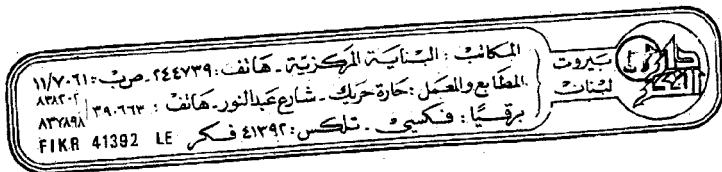 دار الفكر
بيروت
لبنان
المكاتب : البناية المركزية - هاتف : ٢٤٤٧٣٩ - ص ب : ١١/٧٠٦١
المطابع والمعمل : حارة حريك - شارع عبد النور - هاتف : ٣٩٠٦٦٣ / ٨٣٨٢٠٢
٨٣٧٨٩٨
برقيًا : فكسي - تلكس : ٤١٣٩٢ فكر FIKR 41392 LE